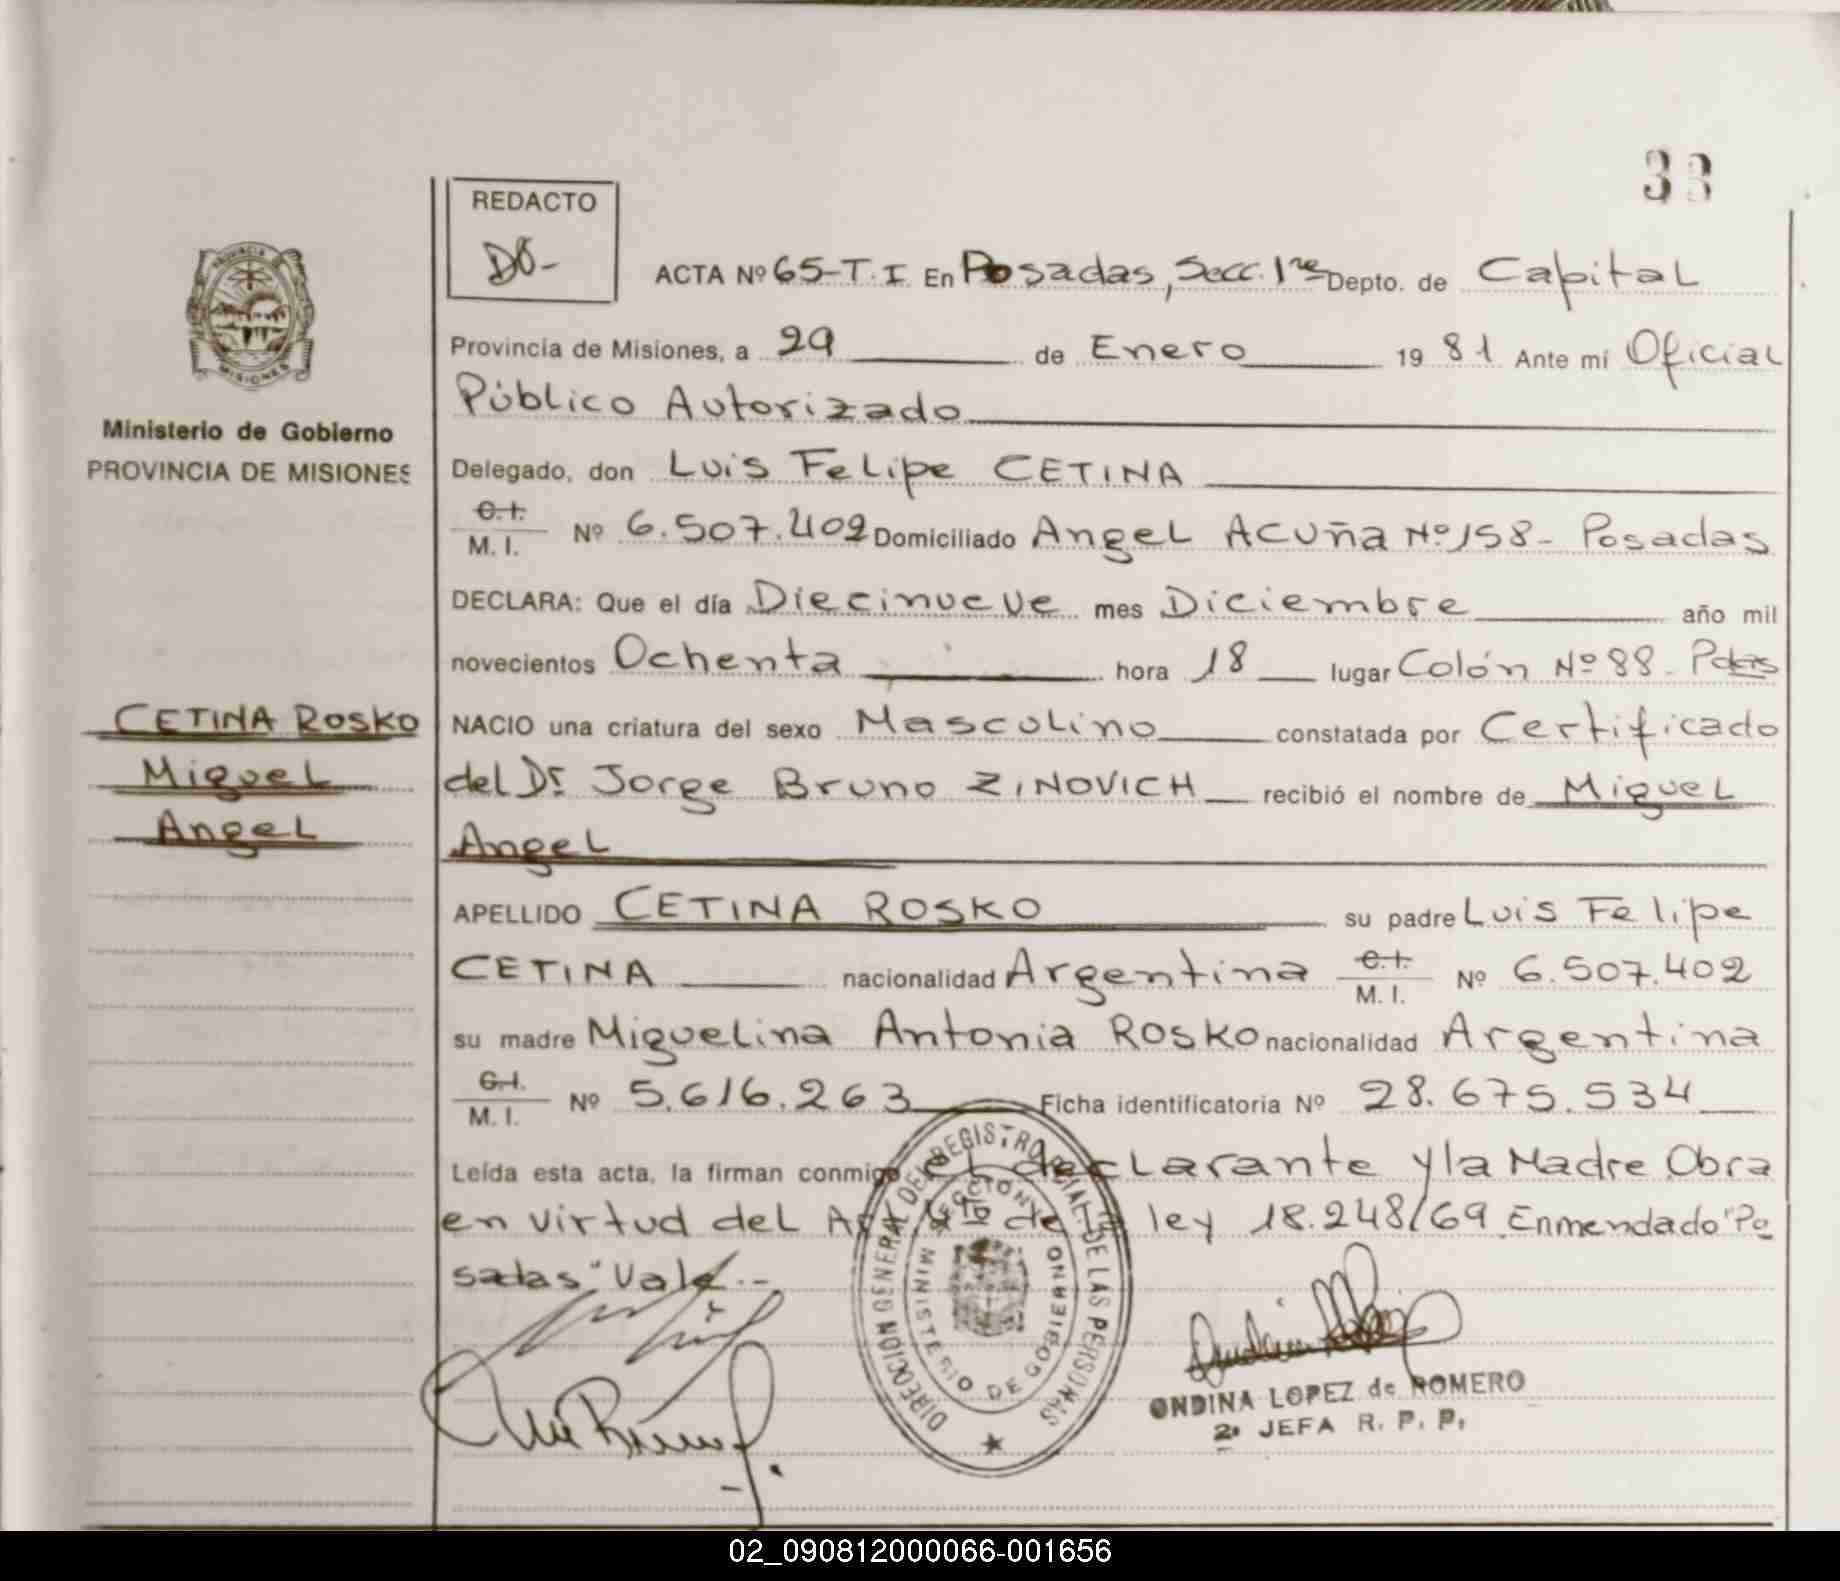 33
REDACTO
ACTA Nº 65-T.I En Posadas, Secc. 1ra Depto. de Capital
PROVINCIA
MISIONES
Provincia de Misiones, a 29 de Enero 1981 Ante mí Oficial
Público Autorizado
Ministerio de Gobierno
PROVINCIA DE MISIONES
Delegado, don Luis Felipe CETINA
C.I.
M. I. Nº 6.507.402 Domiciliado Angel Acuña Nº 158- Posadas
DECLARA: Que el día Diecinueve mes Diciembre año mil
novecientos Ochenta hora 18 lugar Colón Nº 88- Pdas
CETINA ROSKO
Miguel
Angel
NACIO una criatura del sexo Masculino constatada por Certificado
del Dr. Jorge Bruno ZINOVICH recibió el nombre de Miguel
Angel
APELLIDO CETINA ROSKO su padre Luis Felipe
CETINA nacionalidad Argentina C.I. M. I. Nº 6.507.402
su madre Miguelina Antonia ROSKO nacionalidad Argentina
C.I.
M. I. Nº 5.616.263 Ficha identificatoria Nº 28.675.534
Leída esta acta, la firman conmigo el declarante y la Madre. Obra
en virtud del Art. de la ley 18.248/69. Enmendado "Po
sadas" Vale.--
DIRECCIÓN GENERAL DEL REGISTRO PCIAL. DE LAS PERSONAS
MINISTERIO DE GOBIERNO
ONDINA LOPEZ de ROMERO
2a JEFA R. P. P.
02_090812000066-001656